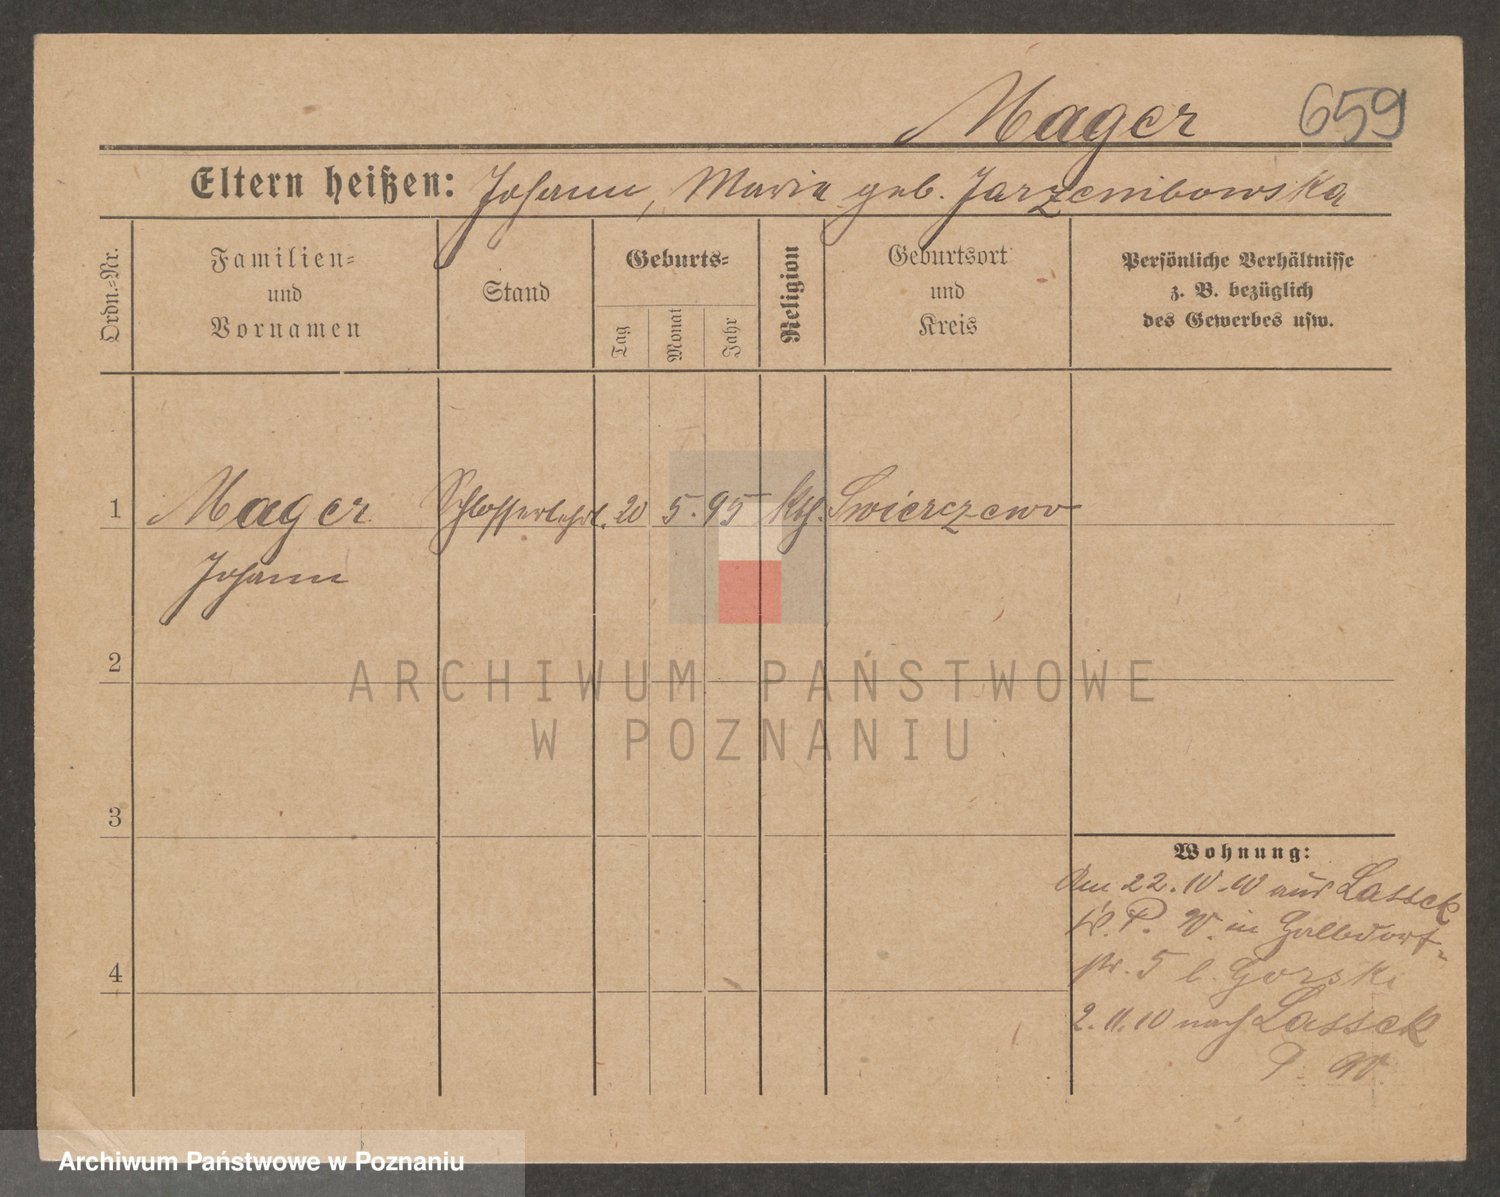 Mager 659
Eltern heißen: Johann, Maria geb. Jarzembowska
Ordn.=Nr.
Familien=
und
Vornamen
Stand
Geburts=
Tag
Monat
Jahr
Religion
Geburtsort
und
Kreis
Persönliche Verhältnisse
z. B. bezüglich
des Gewerbes usw.
1 Mager Schlosserlehrl. 20 5. 95 kth. Swierczewo
Johann
2
3
4
Wohnung:
Am 22.10.10 aus Lassek
P. W. in Halbdorf-
str. 5 b. Gorski
2.11.10 nach Lassek
P. W.
ARCHIWUM PAŃSTWOWE
W POZNANIU
Archiwum Państwowe w Poznaniu